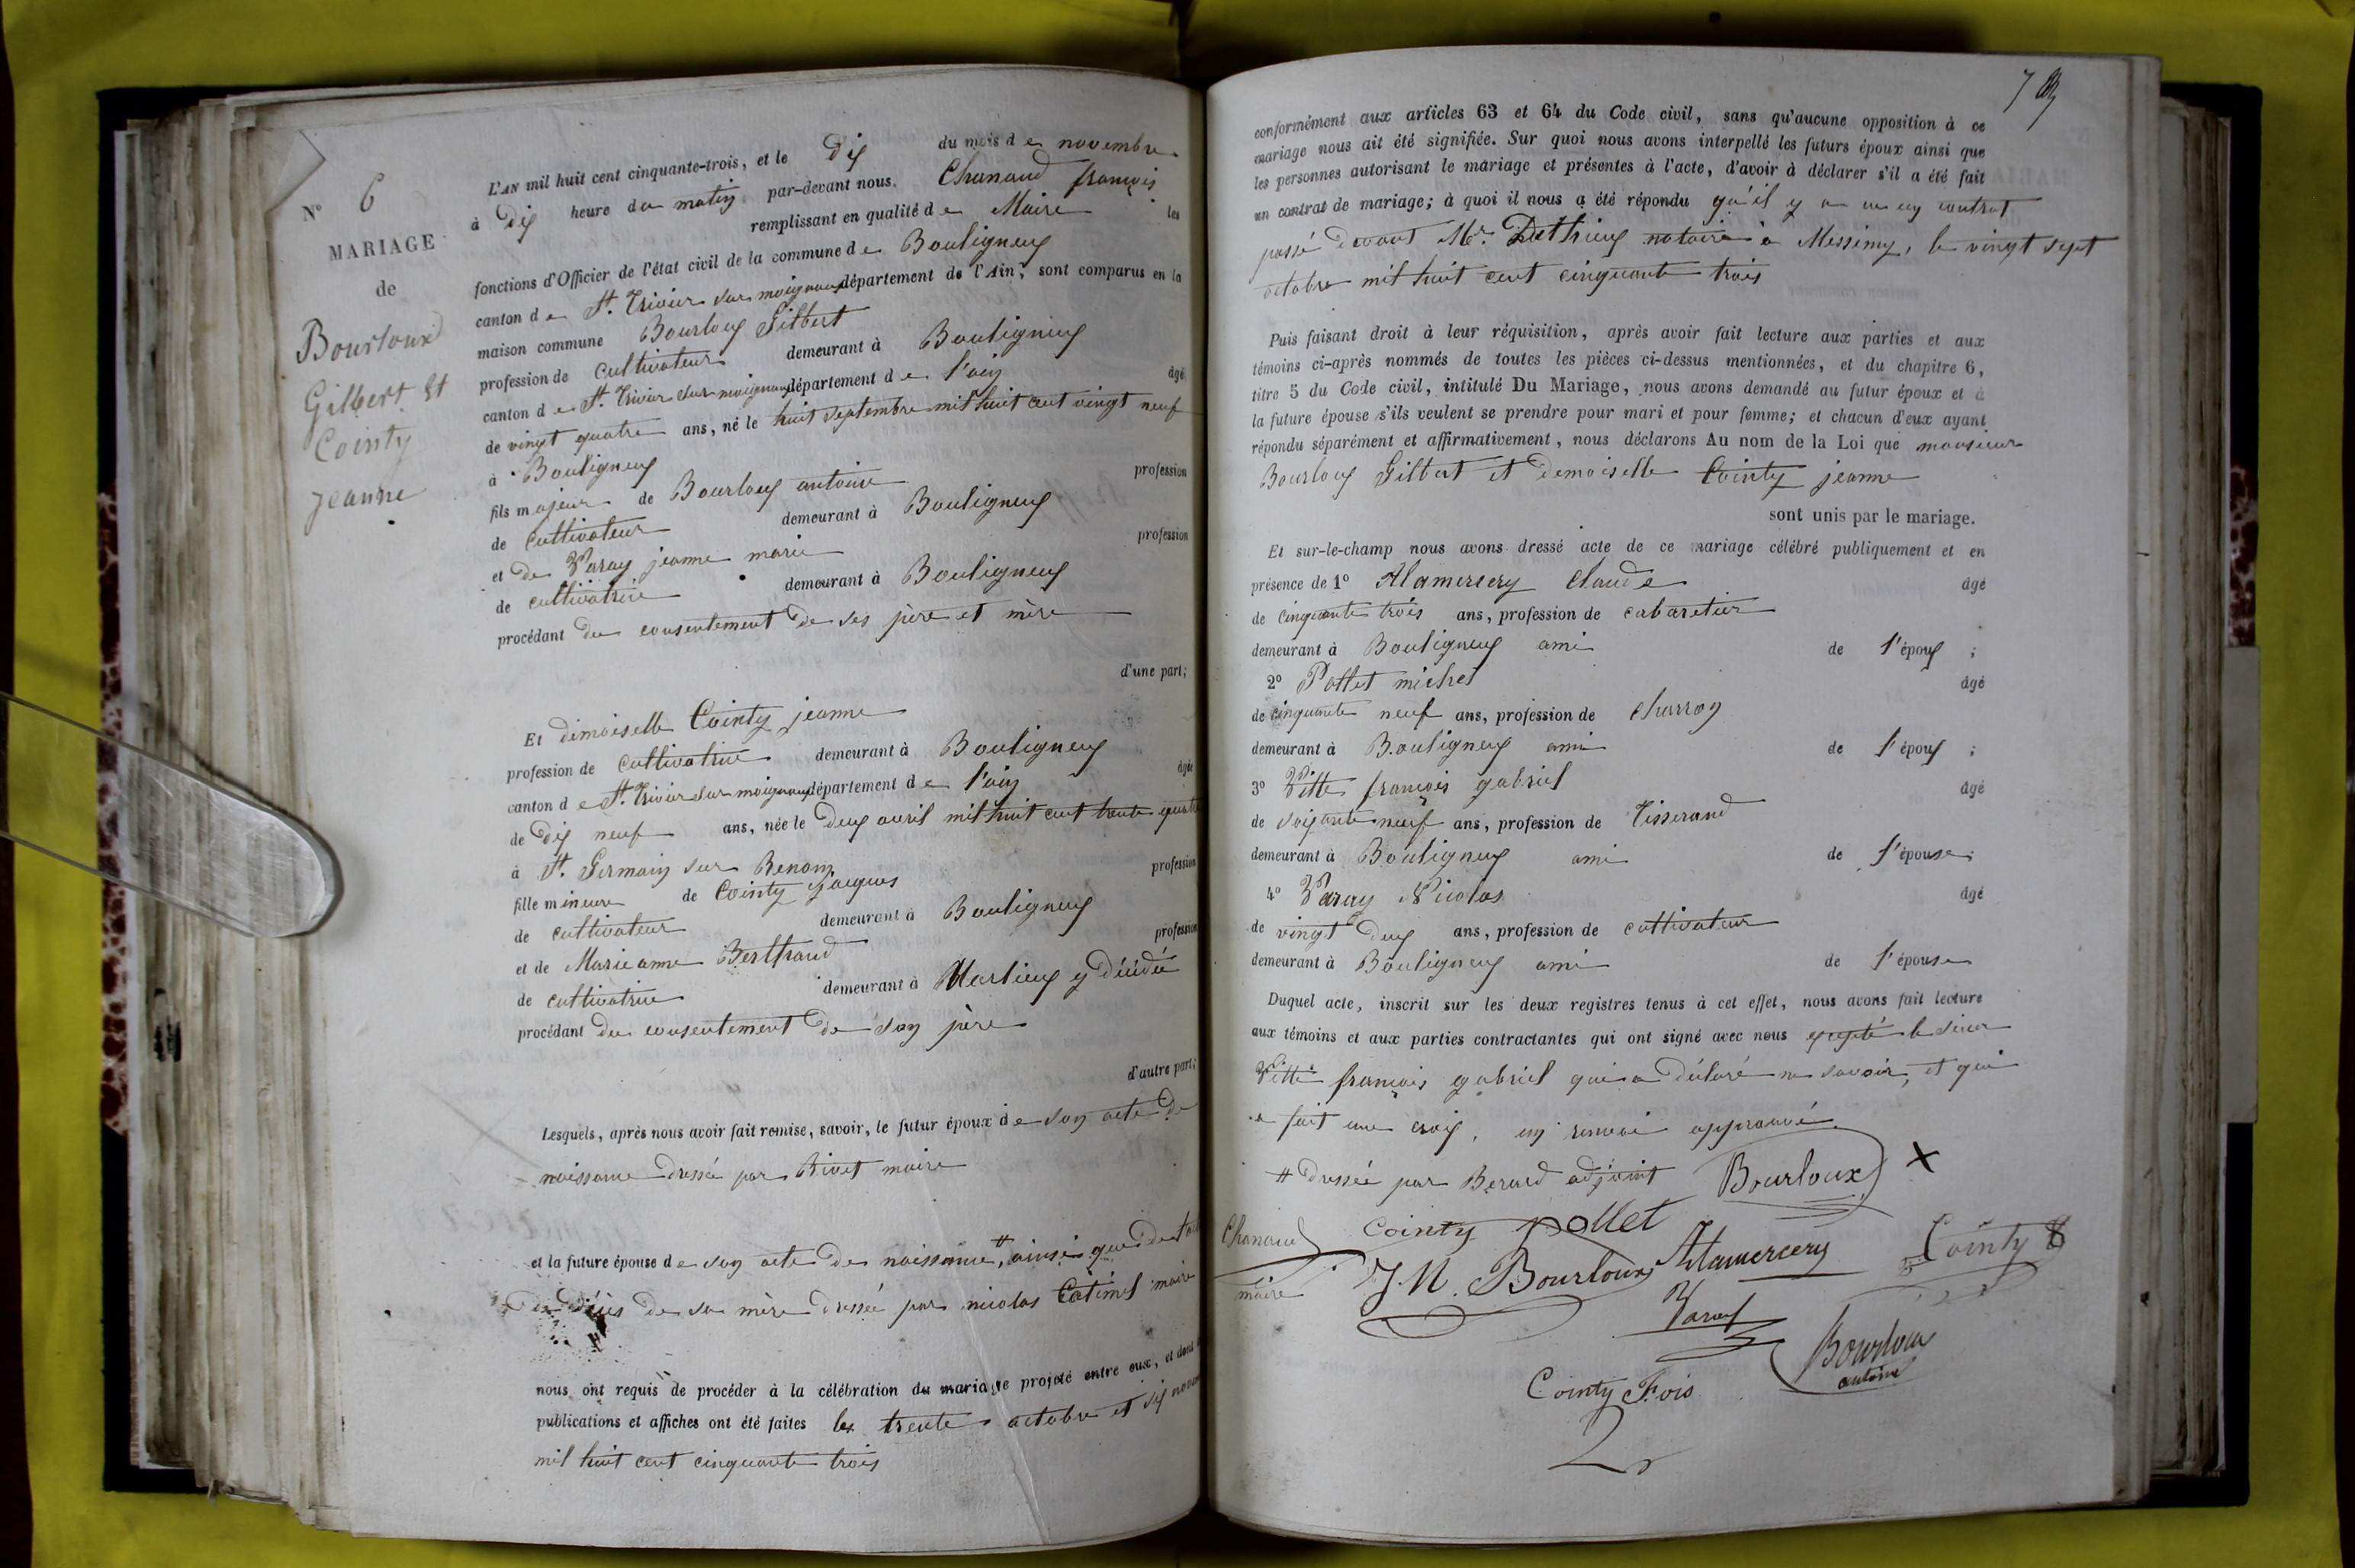 N° 6
MARIAGE
de
Bourloux
Gilbert Et
Cointy
jeanne
L'AN mil huit cent cinquante-trois, et le dix du mois de novembre
à dix heure du matin par-devant nous Chanaud françois
remplissant en qualité de Maire les
fonctions d'Officier de l'état civil de la commune de Bouligneux
canton de St. Trivier sur moignans département de l'Ain, sont comparus en la
maison commune Bourloux Gilbert
profession de cultivateur demeurant à Bouligneux
canton de St. Trivier sur moignans département de l'ain âgé
de vingt quatre ans, né le huit septembre mil huit cent vingt neuf
à Bouligneux
fils majeur de Bourloux antoine profession
de cultivateur demeurant à Bouligneux
et de Varay jeanne marie profession
de cultivatrice demeurant à Bouligneux
procédant du consentement de ses père et mère
d'une part;
Et dimoiselle Cointy jeanne
profession de cultivatrice demeurant à Bouligneux
canton de St. Trivier sur moignans département de l'ain âgée
de dix neuf ans, née le deux avril mil huit cent trente quatre
à St. Germain sur Renom
fille mineure de Cointy Jacques profession
de cultivateur demeurant à Bouligneux
et de Marie anne Berthaud profession
de cultivatrice demeurant à Marlieux y décédée
procédant du consentement de son père
d'autre part;
Lesquels, après nous avoir fait remise, savoir, le futur époux de son acte de
naissance dressé par Rivet maire
et la future épouse de son acte de naissance, # ainsi que de
de décès de sa mère dressé par nicolas Catimel maire
nous ont requis de procéder à la célébration du mariage projeté entre eux, et dont
publications et affiches ont été faites les trente octobre et six
mil huit cent cinquante trois
conformément aux articles 63 et 64 du Code civil, sans qu'aucune opposition à ce
mariage nous ait été signifiée. Sur quoi nous avons interpellé les futurs époux ainsi que
les personnes autorisant le mariage et présentes à l'acte, d'avoir à déclarer s'il a été fait
un contrat de mariage; à quoi il nous a été répondu qu'il y a eu un contrat
passé devant Mr. Dethieux notaire à Messimy, le vingt sept
octobre mil huit cent cinquante trois
Puis faisant droit à leur réquisition, après avoir fait lecture aux parties et aux
témoins ci-après nommés de toutes les pièces ci-dessus mentionnées, et du chapitre 6,
titre 5 du Code civil, intitulé Du Mariage, nous avons demandé au futur époux et à
la future épouse s'ils veulent se prendre pour mari et pour femme; et chacun d'eux ayant
répondu séparément et affirmativement, nous déclarons Au nom de la Loi que monsieur
Bourloux Gilbert et demoiselle Cointy jeanne
sont unis par le mariage.
Et sur-le-champ nous avons dressé acte de ce mariage célébré publiquement et en
présence de 1° Alamersery Claude âgé
de cinquante trois ans, profession de cabaretier
demeurant à Bouligneux ami de l'époux ;
2° Pollet michel âgé
de cinquante neuf ans, profession de charron
demeurant à Bouligneux ami de l'époux ;
3° Vitte françois gabriel âgé
de soixante neuf ans, profession de Tisserand
demeurant à Bouligneux ami de l'épouse;
4° Varay Nicolas âgé
de vingt deux ans, profession de cultivateur
demeurant à Bouligneux ami de l'épouse
Duquel acte, inscrit sur les deux registres tenus à cet effet, nous avons fait lecture
aux témoins et aux parties contractantes qui ont signé avec nous excepté le sieur
Vitte françois gabriel qui a déclaré ne savoir, et qui
a fait une croix, un renvoi approuvé
# dressée par Berard adjoint Bourloux X
Chanaud Cointy pollet
maire J. M. Bourloux Alamercery Cointy
Varay
Bourloux
antoine
Cointy F.ois